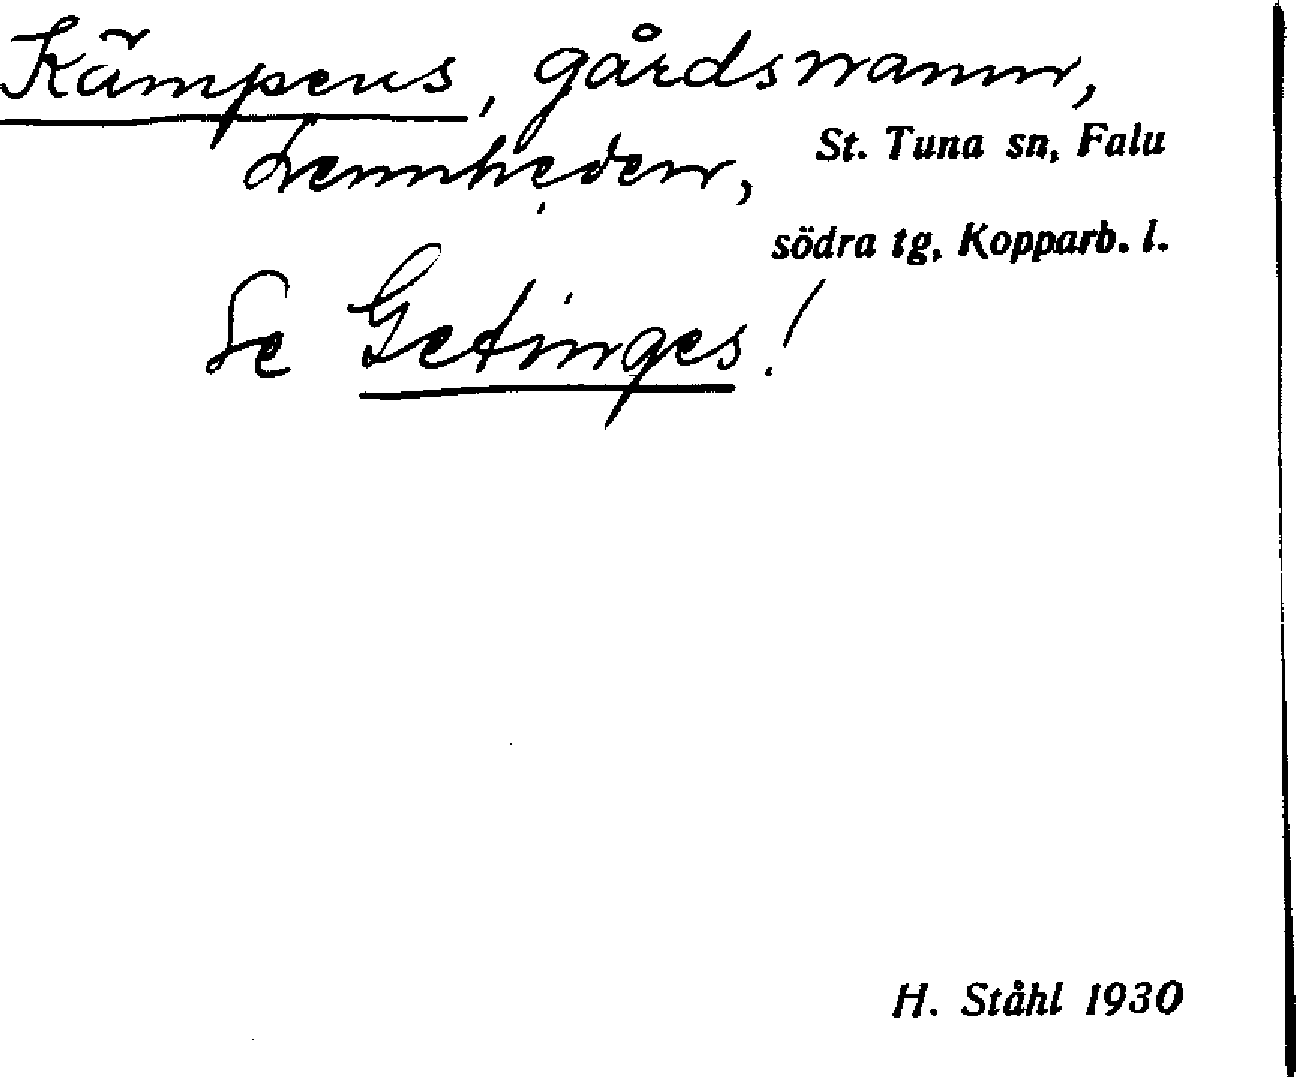 Kämpens, gårdsnamn,
Lennheden, St. Tuna sn, Falu
södra tg, Kopparb. l.
Se Getinges!
H. Ståhl 1930